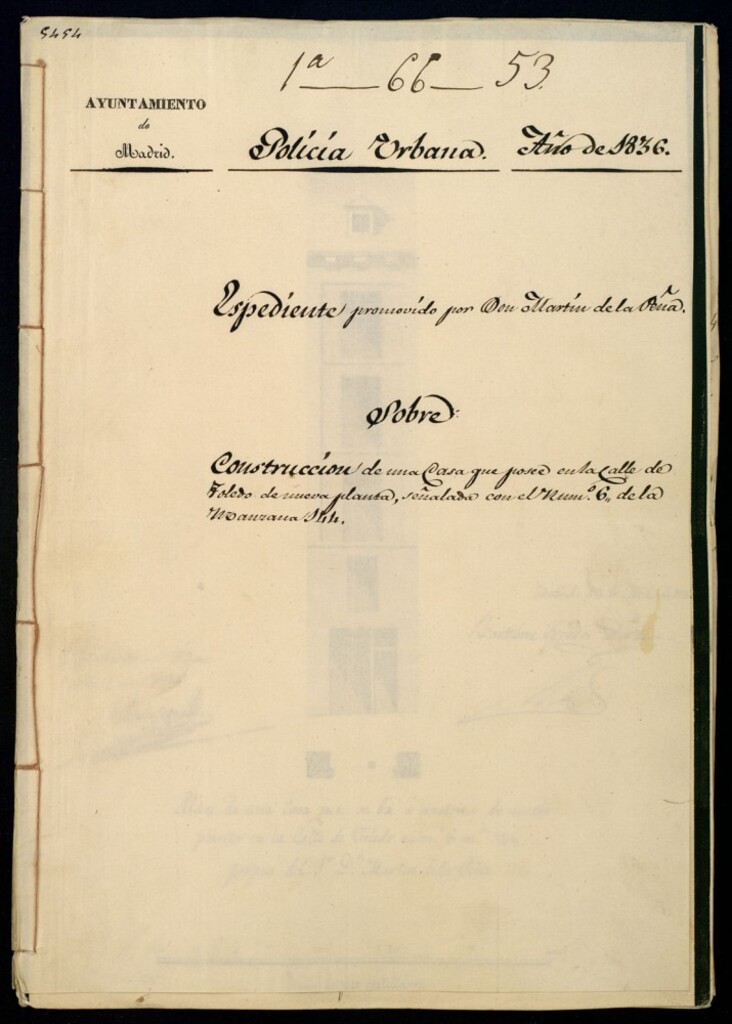 5454
1ª — 66 — 53.
AYUNTAMIENTO
de
Madrid.
Policía Urbana. Año de 1836.
Espediente promovido por Don Martin de la Peña.
Sobre
Construccion de una Casa que posee en la Calle de
Toledo de nueva planta, señalada con el Num.º 6,, de la
Manzana 144.